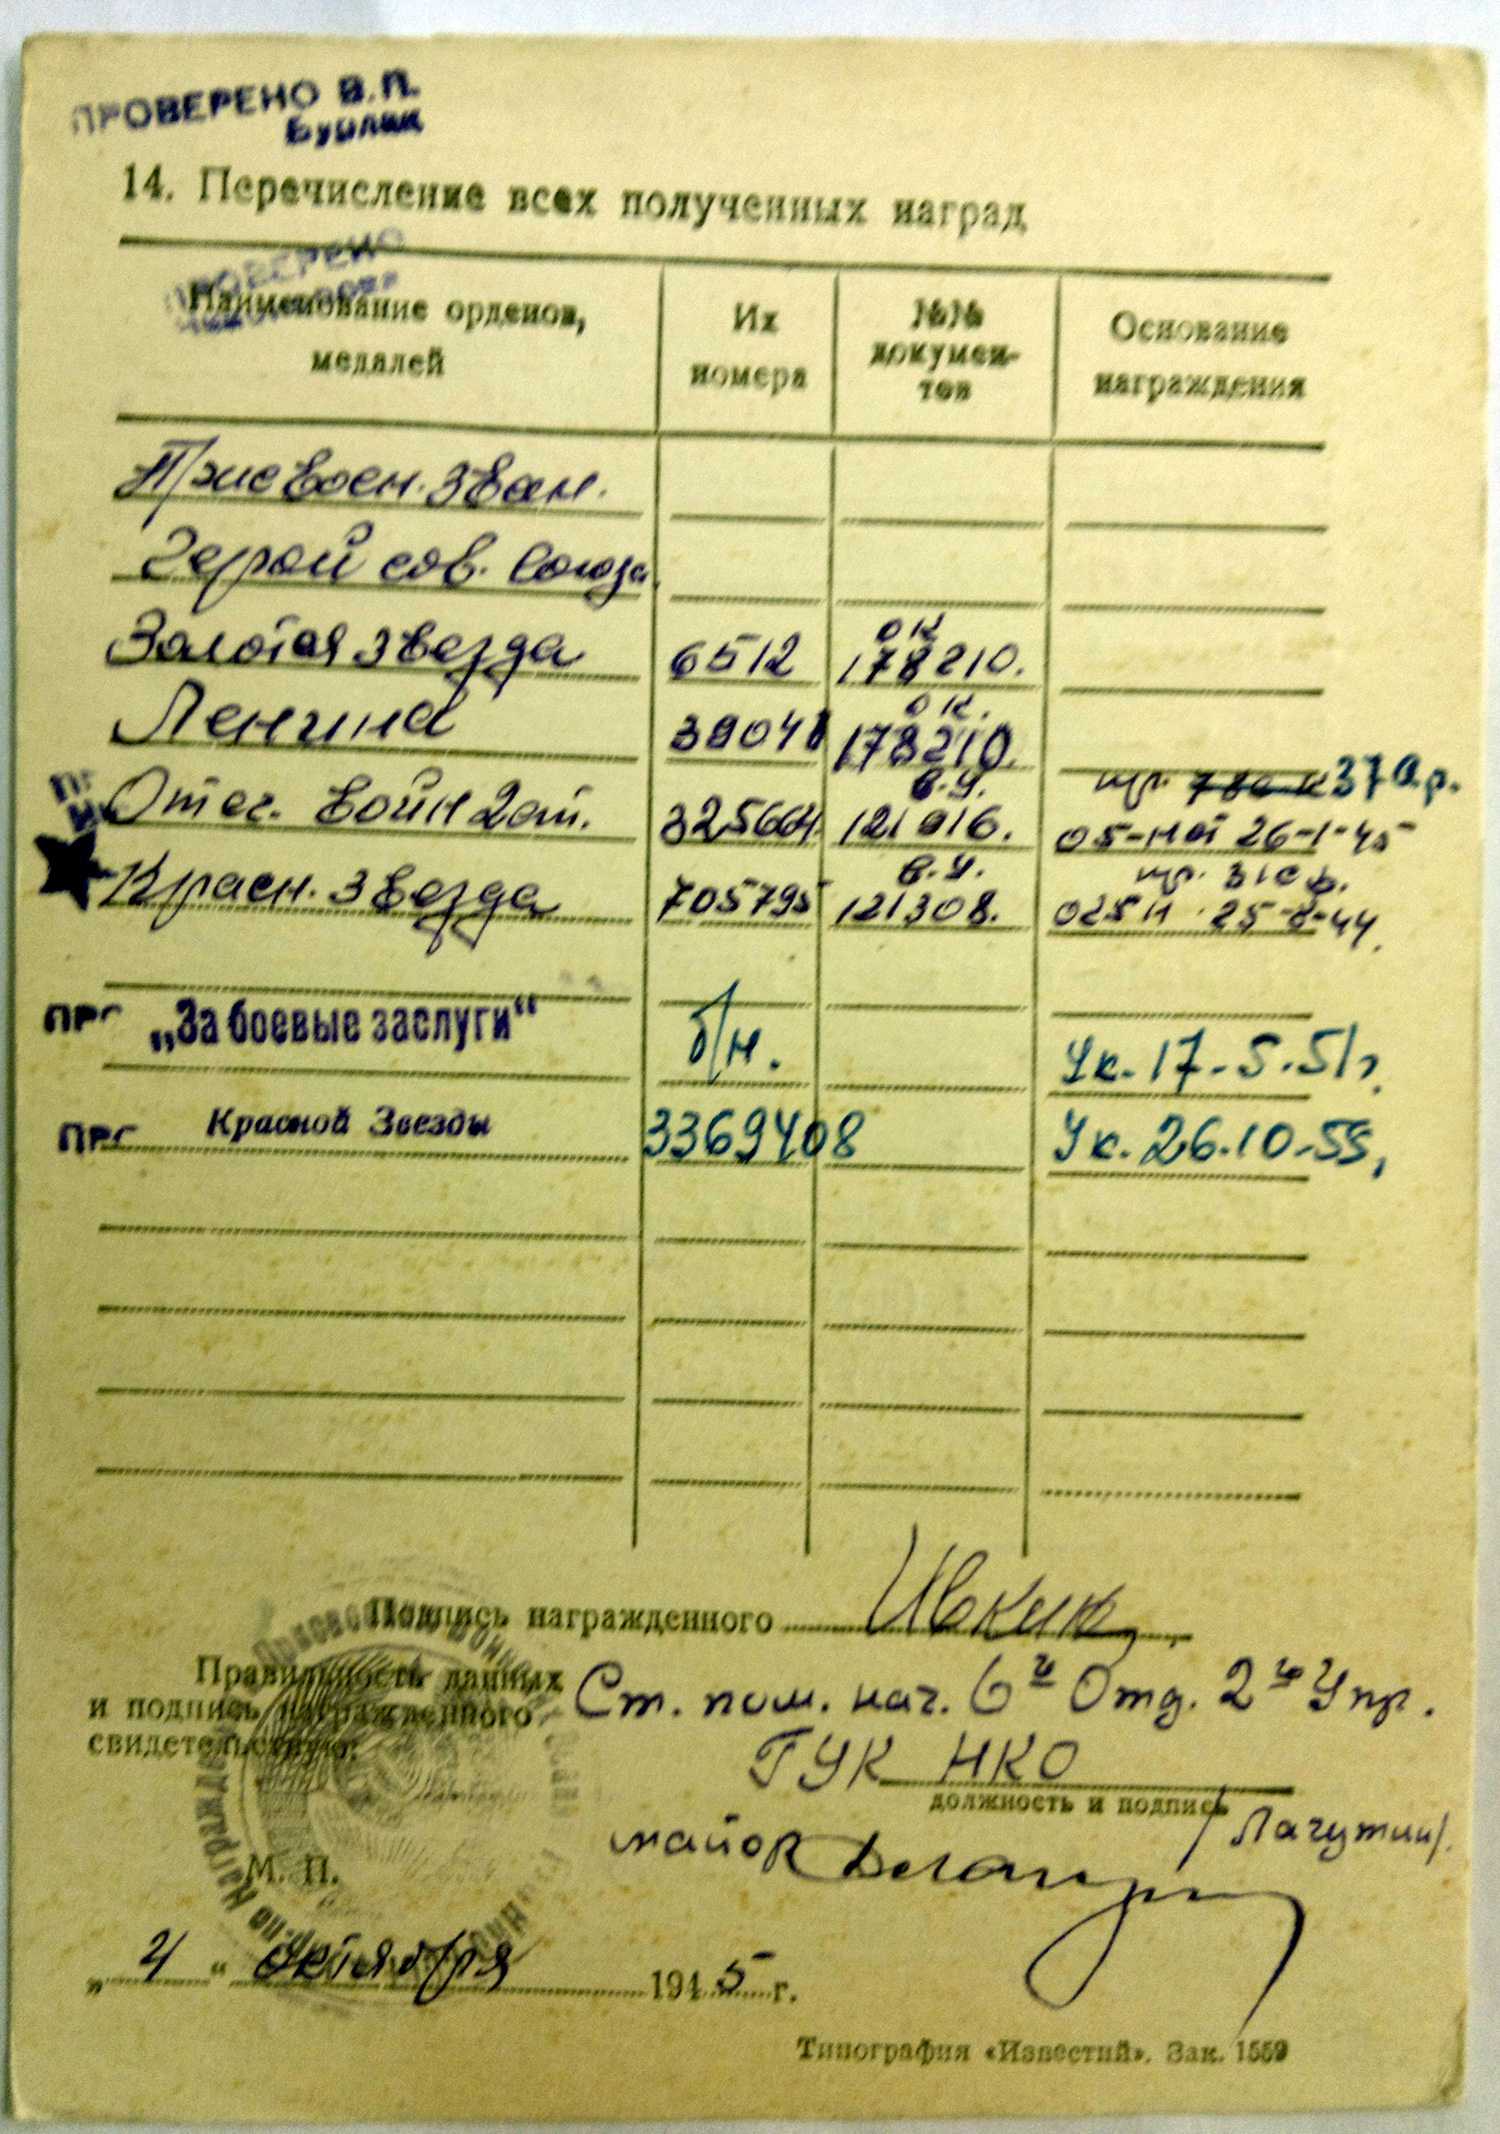 ПРОВЕРЕНО В.П.
14. Перечисление всех полученных наград
ПРОВЕРЕНО
Наименование орденов, медалей
Их номера
№№ докумен-тов
Основание награждения
Присвоен. зван.
Герой сов. Союза
Золотая звезда 6512 ОК 178210.
Ленина 39041 ОК. 178210.
Отеч. войн 2 ст. 325664 В.У. 121016. пр. 37 Ар.
05-н от 26-1-45
Красн. звезда 705795 В.У. 121308. пр. 31 с.
025 н 25-8-44.
ПРО „За боевые заслуги“ б/н. Ук. 17-5-51г.
ПРО Красной Звезды 3369408 Ук. 26.10-55,
Подпись награжденного Ивкин
Правильность данных Ст. пом. нач. 6го Отд. 2го Упр.
и подпись награжденного
свидетельствую: ГУК НКО
должность и подпись
майор /Лачугин/.
М. П.
„4“ октября 1945 г.
Типография «Известий». Зак. 1559